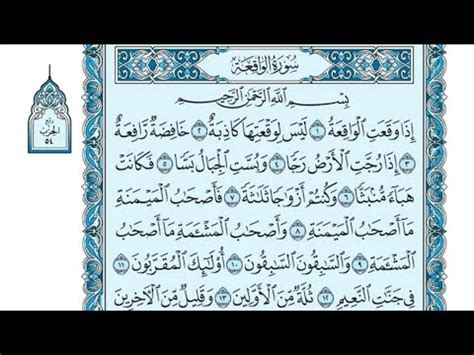 سُورَةُ الوَاقِعَةِ
بِسْمِ اللَّهِ الرَّحْمَٰنِ الرَّحِيمِ
إِذَا وَقَعَتِ الْوَاقِعَةُ ١ لَيْسَ لِوَقْعَتِهَا كَاذِبَةٌ ٢ خَافِضَةٌ رَّافِعَةٌ
٣ إِذَا رُجَّتِ الْأَرْضُ رَجًّا ٤ وَبُسَّتِ الْجِبَالُ بَسًّا ٥ فَكَانَتْ
هَبَاءً مُّنْبَثًّا ٦ وَكُنتُمْ أَزْوَاجًا ثَلَاثَةً ٧ فَأَصْحَابُ الْمَيْمَنَةِ
مَا أَصْحَابُ الْمَيْمَنَةِ ٨ وَأَصْحَابُ الْمَشْأَمَةِ مَا أَصْحَابُ
الْمَشْأَمَةِ ٩ وَالسَّابِقُونَ السَّابِقُونَ ١٠ أُولَٰئِكَ الْمُقَرَّبُونَ ١١
فِي جَنَّاتِ النَّعِيمِ ١٢ ثُلَّةٌ مِّنَ الْأَوَّلِينَ ١٣ وَقَلِيلٌ مِّنَ الْآخِرِينَ
الحزب
٥٤